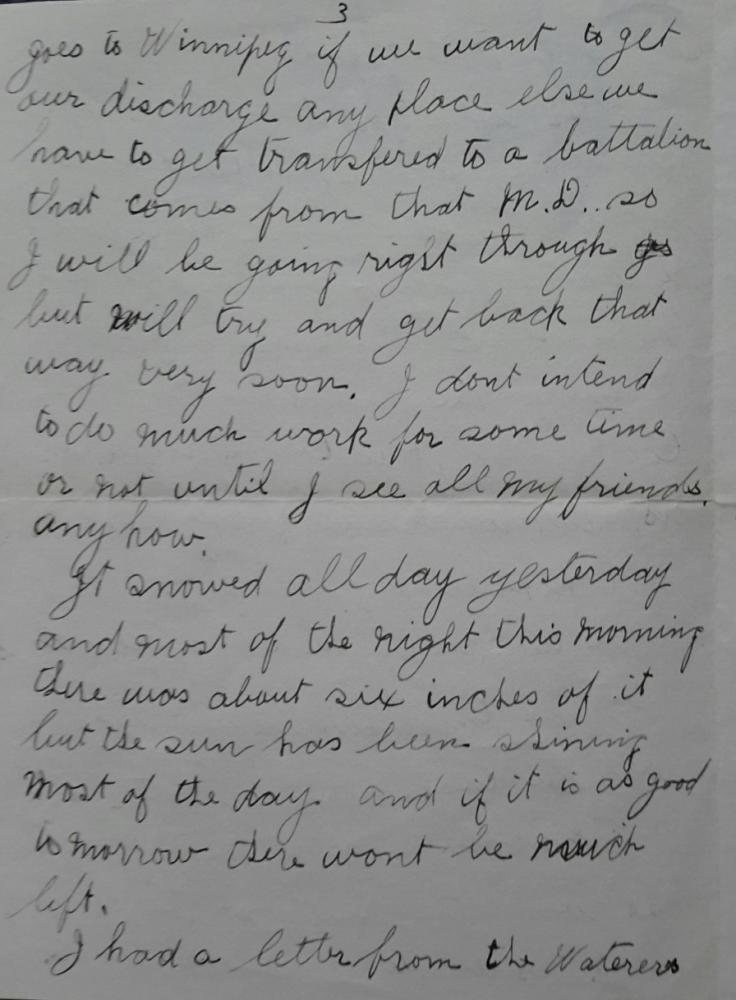 3
goes to Winnipeg if we want to get
our discharge any place else we
have to get transfered to a battalion
that comes from that M.D.. so
I will be going right through
but will try and get back that
way. very soon. I dont intend
to do much work for some time
or not until I see all my friends.
any how.
It snowed all day yesterday
and most of the night this morning
there was about six inches of it
but the sun has been shining
most of the day. and if it is as good
tomorrow there wont be much
left.
I had a letter from the Waterers